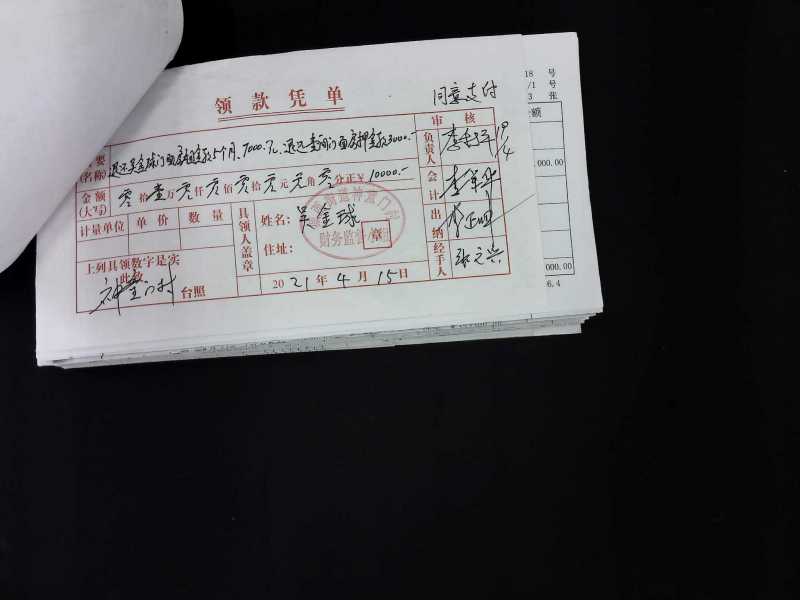 领款凭单
同意支付
18 号
/1 号
3 张
金额
摘要(名称) 退还吴金球门面房租金款5个月、7000.元、退还查询门面房押金款3000.-
审核
负责人 19/4
000.00
金额(大写) 零拾壹万零仟零佰零拾元角零分正¥ 10000.-
会计 李军华
计量单位 单价 数量
具领人盖章
姓名: 吴金球
住址:
财务监督小组
章
出纳 李正明
上列具领数字是实
此致
台照
2021年4月15日
经手人
000.00
6.4